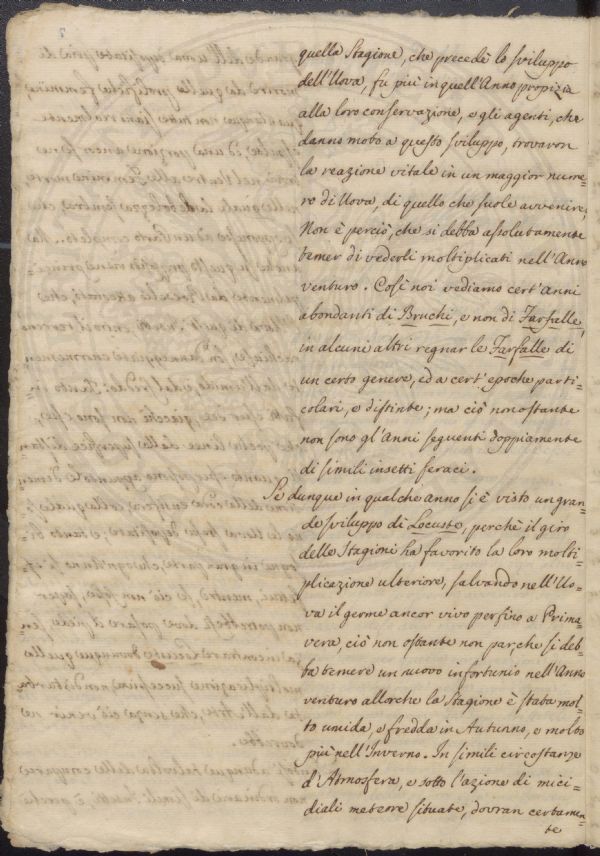 quella Stagione, che precedè lo sviluppo
dell'Uova, fu più in quell'Anno propizia
alla loro conservazione, e gli agenti, che
danno moto a questo sviluppo, trovaron
la reazione vitale in un maggior nume=
ro di Uova, di quello che suole avvenire;
Non è perciò, che si debba assolutamente
temer di vederli moltiplicati nell'Anno
venturo. Così noi vediamo cert'anni
abondanti di Bruchi, e non di Farfalle,
in alcuni altri regnar le Farfalle di
un certo genere, ed a cert'epoche parti=
colari, e distinte; ma ciò non ostante
non sono gl'Anni seguenti doppiamente
di simili insetti feraci.
Se dunque in qualche anno si è visto un gran=
de sviluppo di Locuste, perchè il giro
delle Stagioni ha favorito la loro molti=
plicazione ulteriore, salvando nell'Uo=
va il germe ancor vivo perfino a Prima=
vera, ciò non ostante non par, che si deb=
ba temere un nuovo infortunio nell'Anno
venturo allorchè la Stagione è stata mol=
to umida, e fredda in Autunno, e molto
più nell'Inverno. In simili circostanze
d'Atmosfera, e sotto l'azione di mici=
diali meteore situate, dovran certamen=
te